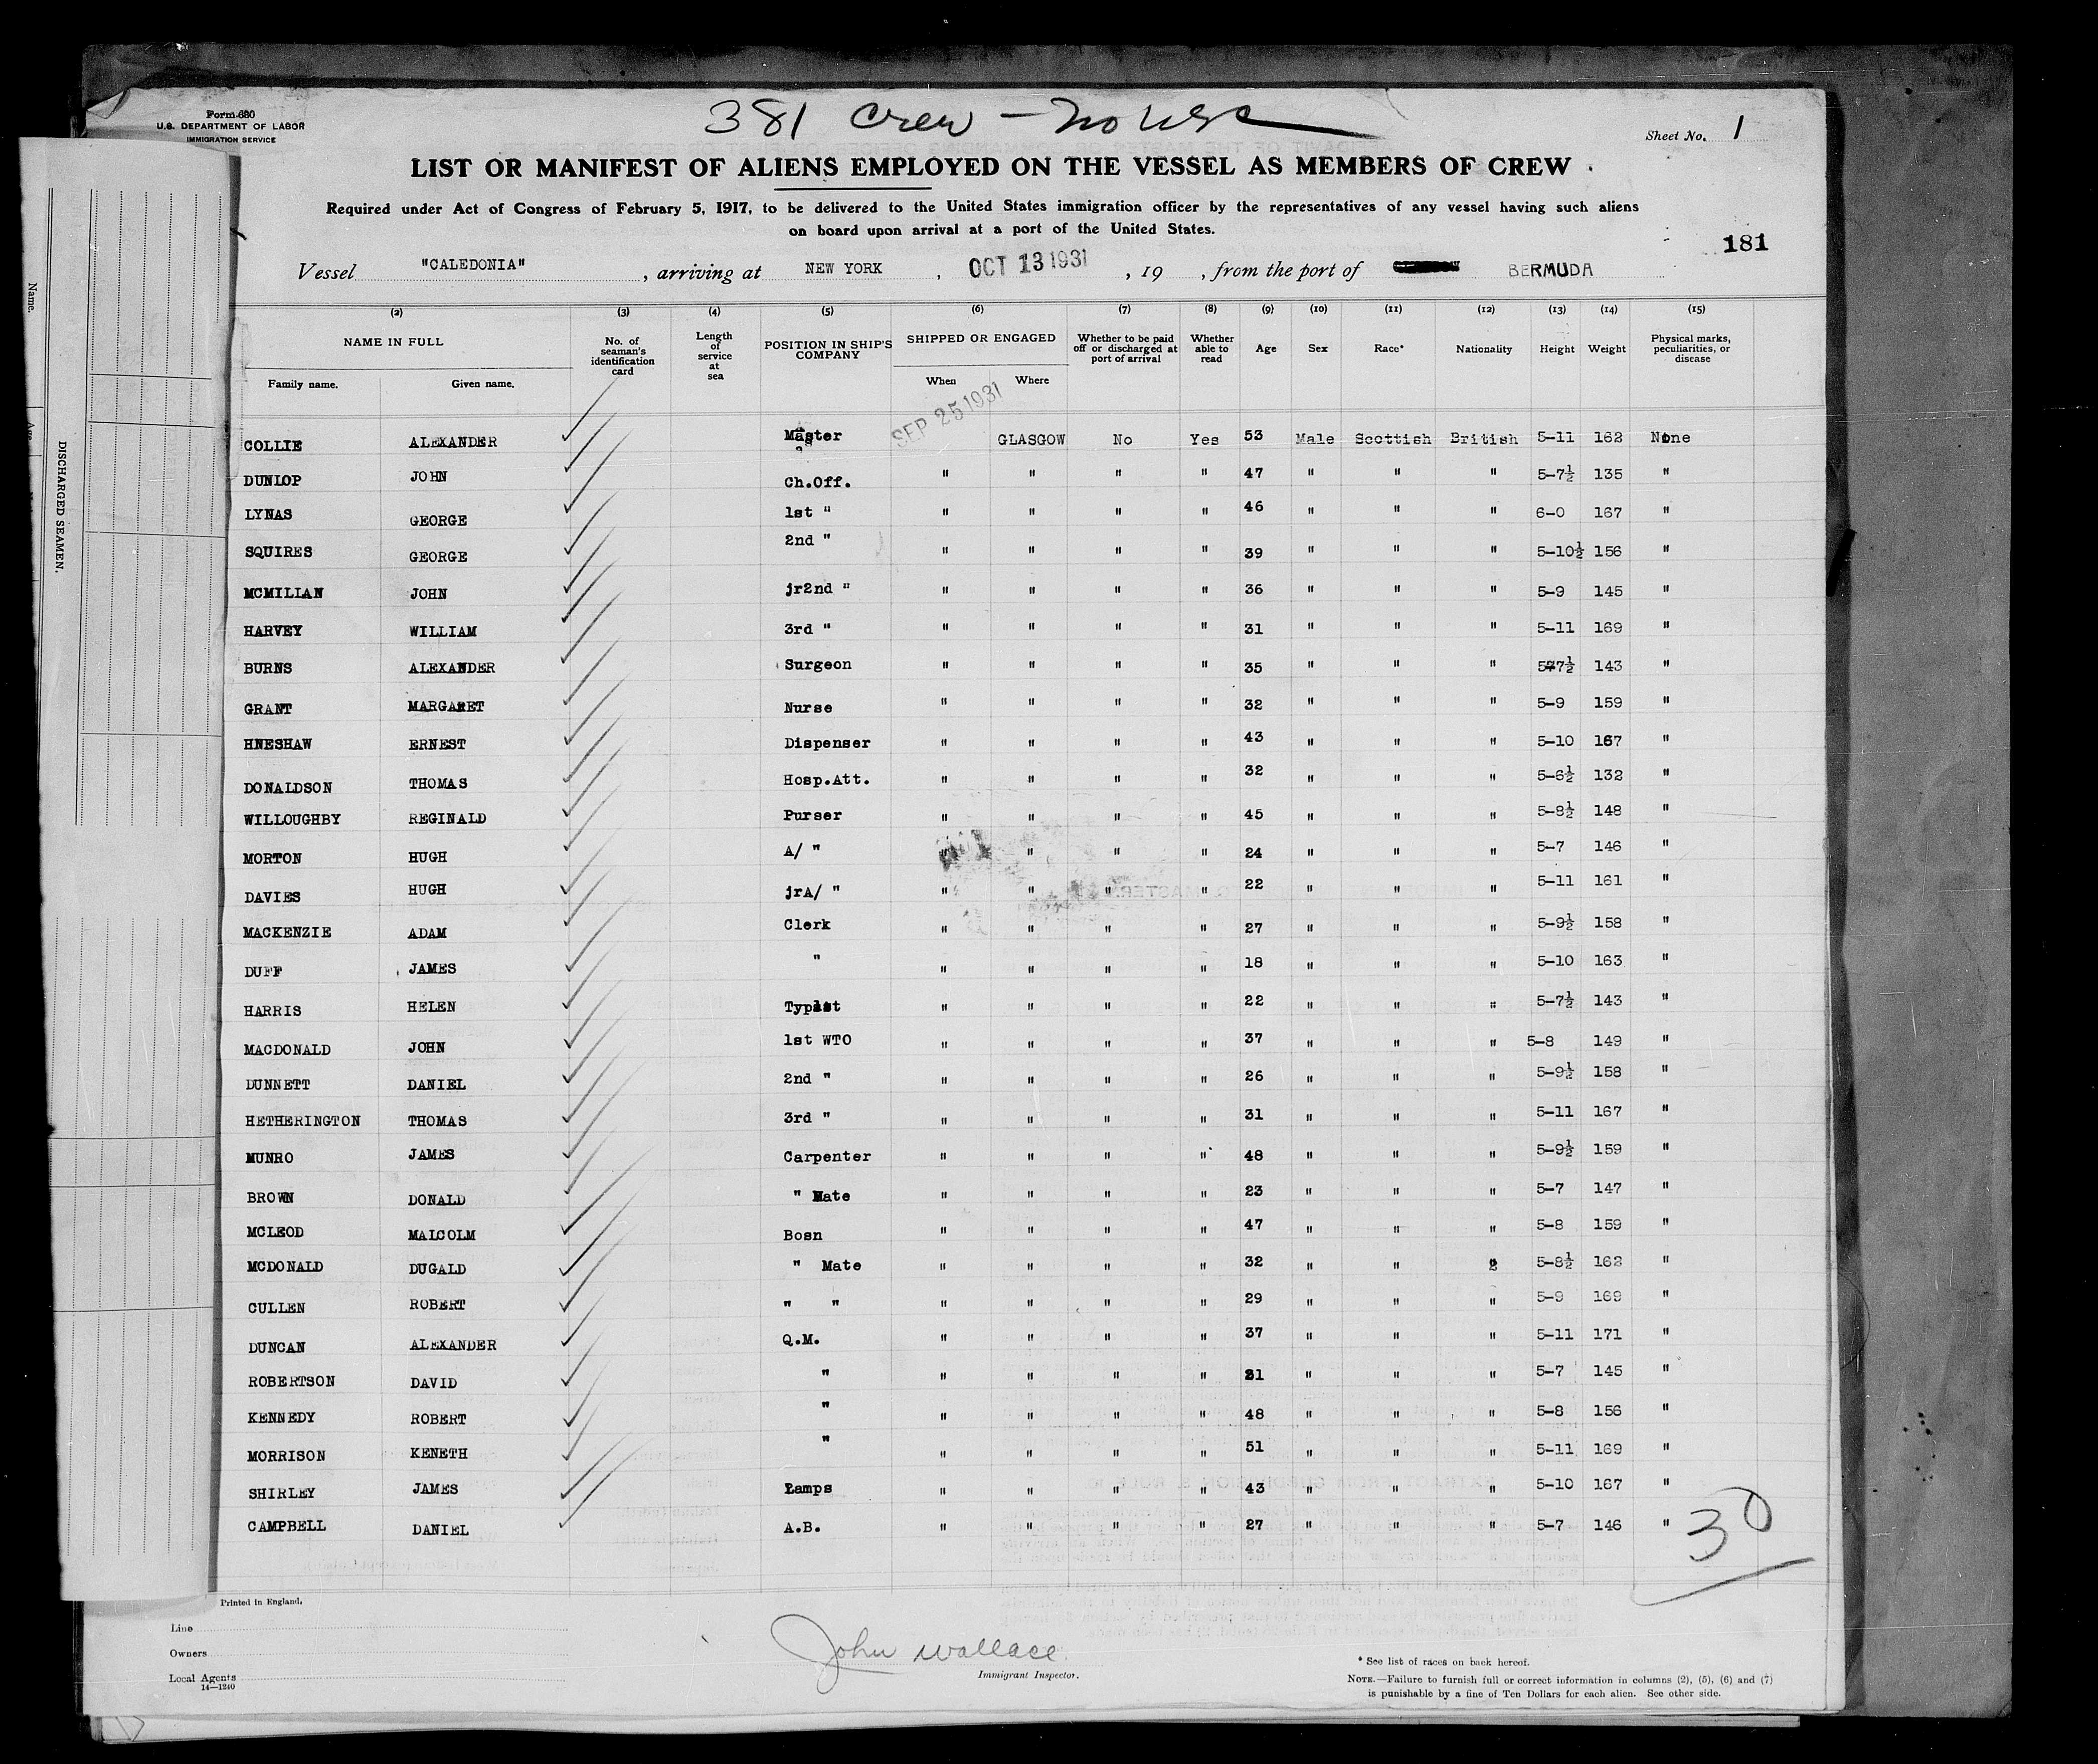 381 Crew — No USC
Form 680
U.S. DEPARTMENT OF LABOR
IMMIGRATION SERVICE
Sheet No. 1
LIST OR MANIFEST OF ALIENS EMPLOYED ON THE VESSEL AS MEMBERS OF CREW
Required under Act of Congress of February 5, 1917, to be delivered to the United States immigration officer by the representatives of any vessel having such aliens
on board upon arrival at a port of the United States.
181
Vessel "CALEDONIA", arriving at NEW YORK, OCT 13 1931, 19 , from the port of BERMUDA
(2) (3) (4) (5) (6) (7) (8) (9) (10) (11) (12) (13) (14) (15)
NAME IN FULL No. of seaman's identification card Length of service at sea POSITION IN SHIP'S COMPANY SHIPPED OR ENGAGED Whether to be paid off or discharged at port of arrival Whether able to read Age Sex Race* Nationality Height Weight Physical marks, peculiarities, or disease
Family name. Given name. When Where
SEP 25 1931
COLLIE ALEXANDER Master GLASGOW No Yes 53 Male Scottish British 5-11 162 None
DUNLOP JOHN Ch.Off. " " " " 47 " " " 5-7½ 135 "
LYNAS GEORGE 1st " " " " " 46 " " " 6-0 167 "
SQUIRES GEORGE 2nd " " " " " 39 " " " 5-10½ 156 "
MCMILLAN JOHN jr2nd " " " " " 36 " " " 5-9 145 "
HARVEY WILLIAM 3rd " " " " " 31 " " " 5-11 169 "
BURNS ALEXANDER Surgeon " " " " 35 " " " 5-7½ 143 "
GRANT MARGARET Nurse " " " " 32 " " " 5-9 159 "
HNESHAW ERNEST Dispenser " " " " 43 " " " 5-10 167 "
DONALDSON THOMAS Hosp.Att. " " " " 32 " " " 5-6½ 132 "
WILLOUGHBY REGINALD Purser " " " " 45 " " " 5-8½ 148 "
MORTON HUGH A/ " " " " " 24 " " " 5-7 146 "
DAVIES HUGH jrA/ " " " " " 22 " " " 5-11 161 "
MACKENZIE ADAM Clerk " " " " 27 " " " 5-9½ 158 "
DUFF JAMES " " " " " 18 " " " 5-10 163 "
HARRIS HELEN Typist " " " " 22 " " " 5-7½ 143 "
MACDONALD JOHN 1st WTO " " " " 37 " " " 5-8 149 "
DUNNETT DANIEL 2nd " " " " " 26 " " " 5-9½ 158 "
HETHERINGTON THOMAS 3rd " " " " " 31 " " " 5-11 167 "
MUNRO JAMES Carpenter " " " " 48 " " " 5-9½ 159 "
BROWN DONALD " Mate " " " " 23 " " " 5-7 147 "
MCLEOD MALCOLM Bosn " " " " 47 " " " 5-8 159 "
MCDONALD DUGALD " Mate " " " " 32 " " " 5-8½ 162 "
CULLEN ROBERT " " " " " " 29 " " " 5-9 169 "
DUNCAN ALEXANDER Q.M. " " " " 37 " " " 5-11 171 "
ROBERTSON DAVID " " " " " 21 " " " 5-7 145 "
KENNEDY ROBERT " " " " " 48 " " " 5-8 156 "
MORRISON KENETH " " " " " 51 " " " 5-11 169 "
SHIRLEY JAMES Lamps " " " " 43 " " " 5-10 167 "
CAMPBELL DANIEL A.B. " " " " 27 " " " 5-7 146 "
30
Printed in England.
Line
Owners
Local Agents
14—1240
John Wallace
Immigrant Inspector.
* See list of races on back hereof.
NOTE.—Failure to furnish full or correct information in columns (2), (5), (6) and (7)
is punishable by a fine of Ten Dollars for each alien. See other side.
Name.
DISCHARGED SEAMEN.